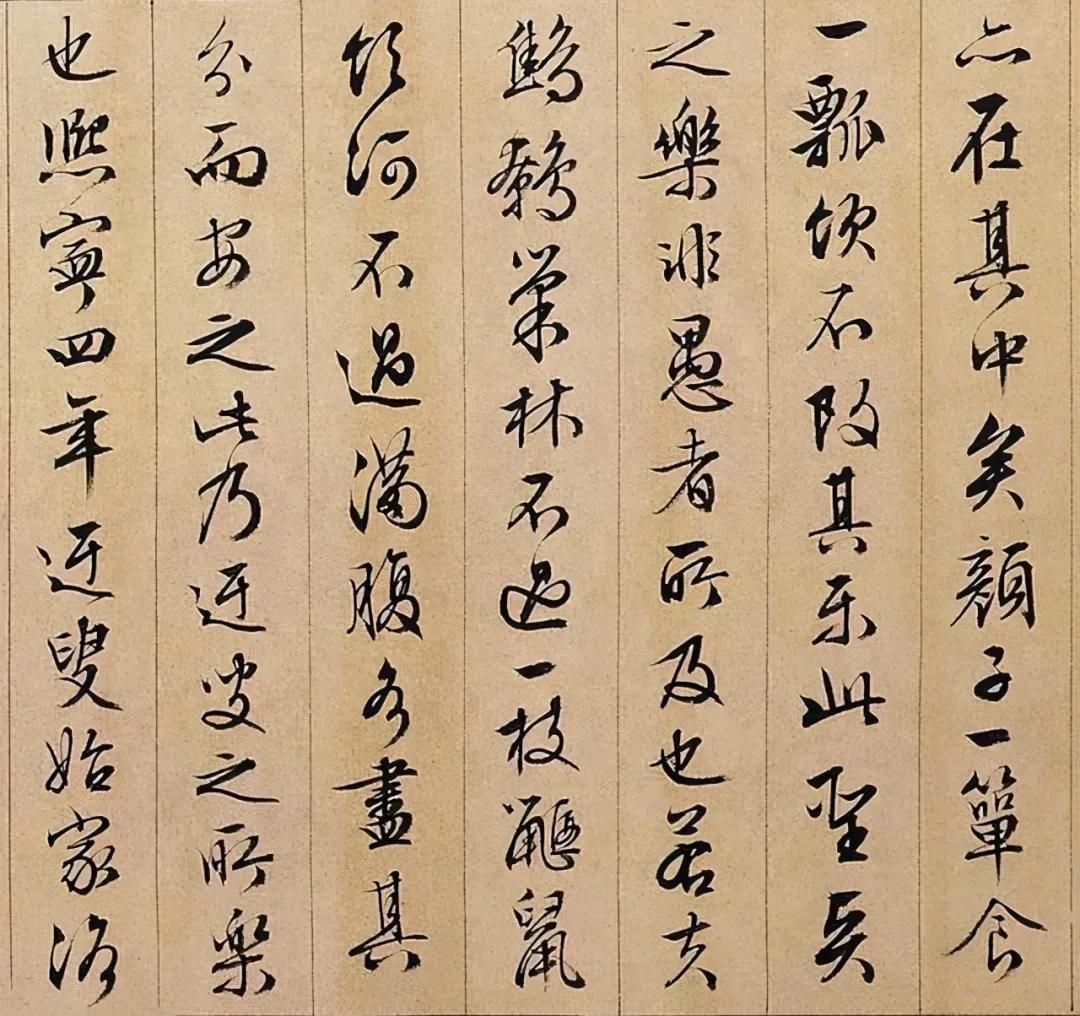 亦在其中矣顏子一簞食
一瓢飲不改其樂此聖賢
之樂非愚者所及也若夫
鷦鷯巢林不過一枝鼴鼠
飲河不過滿腹各盡其
分而安之此乃迂叟之所樂
也熙寧四年迂叟始家洛